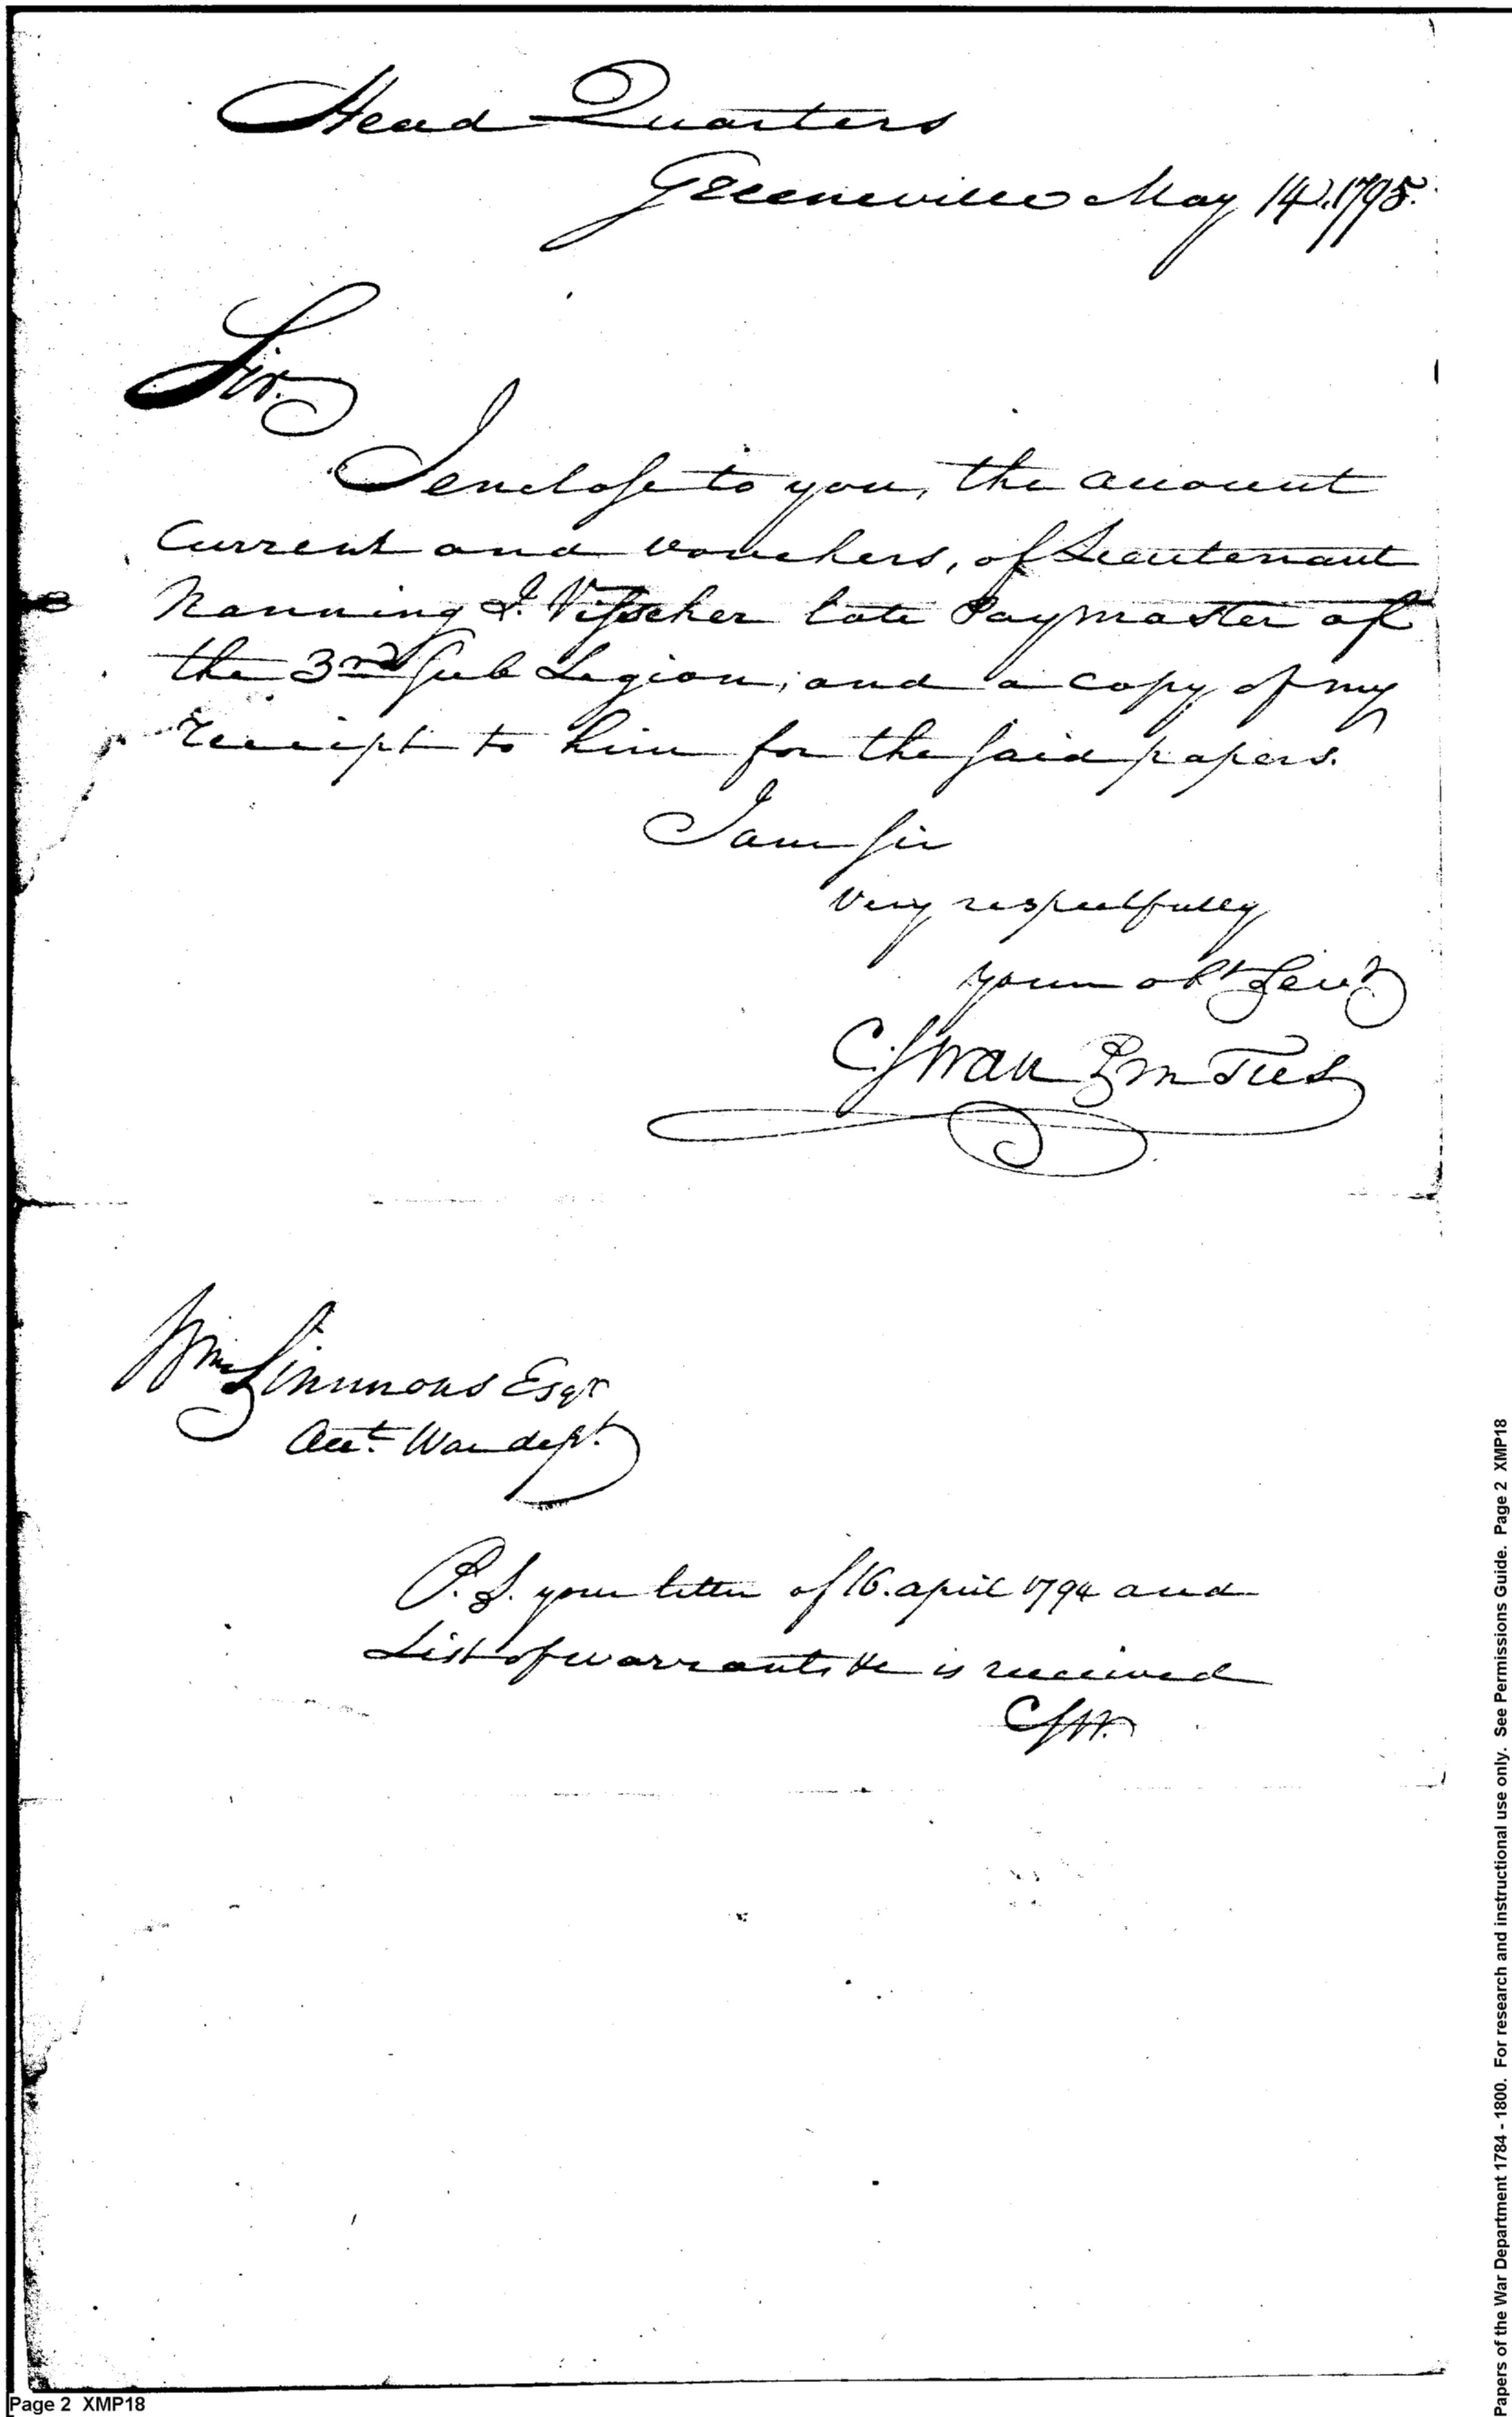 Head Quarters
Greeneville May 14. 1795.
Sir.
I enclose to you, the account
Current and vouchers, of Lieutenant
Nanning I. Visscher late Paymaster of
the 3rd Sub Legion, and a copy of my
receipt to him for the said papers.
I am sir
very respectfully
your obt Servt
C. Swan P M TUS
Wm Simmons Esqr
Acct. War dept.
P. S. your letter of 16. april 1794 and
List of warrants &c is received
CSW.
Page 2 XMP18
Papers of the War Department 1784 - 1800. For research and instructional use only. See Permissions Guide. Page 2 XMP18